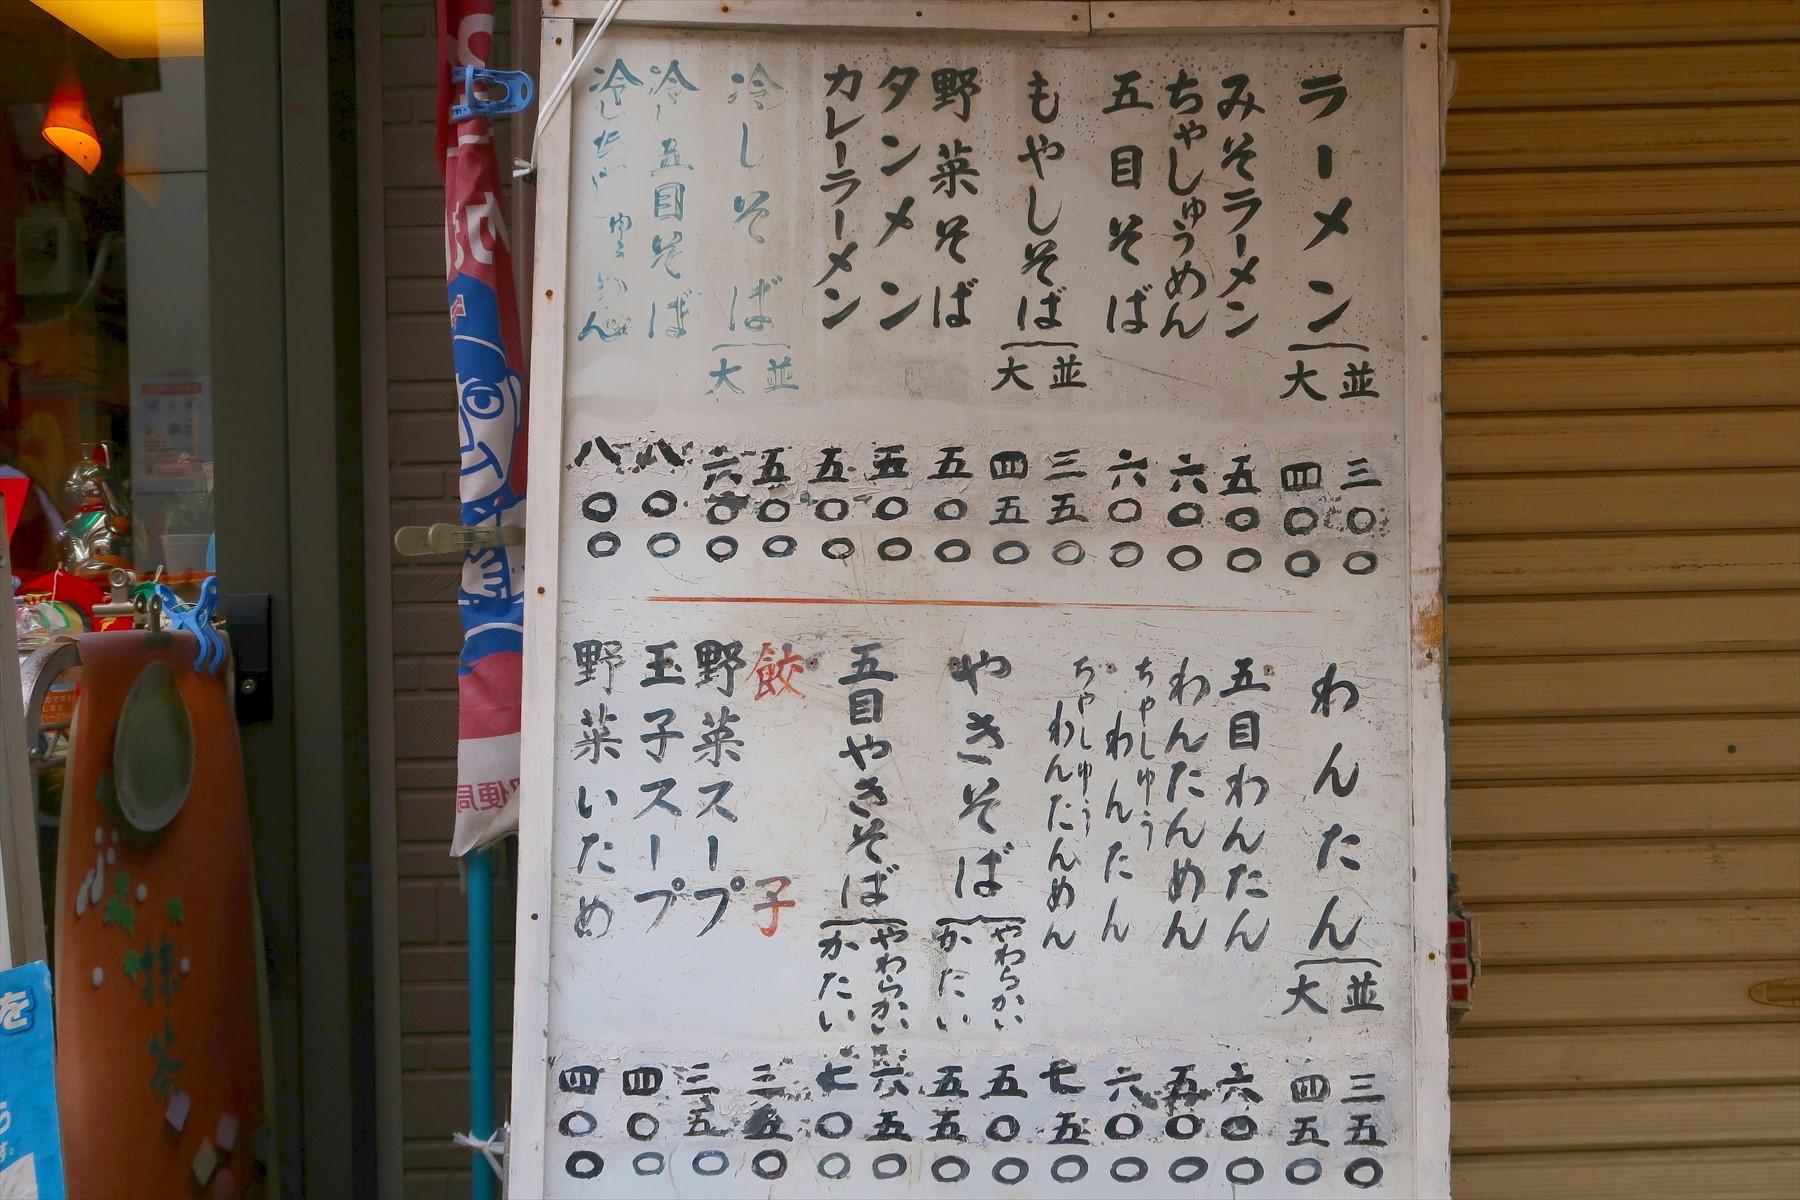 ラーメン 並 三〇〇
大 四〇〇
みそラーメン 五〇〇
ちゃしゅうめん 六〇〇
五目そば 六〇〇
もやしそば 並 三五〇
大 四五〇
野菜そば 五〇〇
タンメン 五〇〇
カレーラーメン 五〇〇
冷しそば 並 五〇〇
大 六〇〇
冷し五目そば 八〇〇
冷し 八〇〇
わんたん 並 三五〇
大 四五〇
五目わんたん 六〇〇
わんたんめん 五〇〇
ちゃしゅうわんたん 六〇〇
ちゃしゅうわんたんめん 七五〇
やきそば やわらかい 五〇〇
かたい 五五〇
五目やきそば やわらかい 六五〇
かたい 七〇〇
餃子 三五〇
野菜スープ 三五〇
玉子スープ 四〇〇
野菜いため 四〇〇
便局
抹茶
を